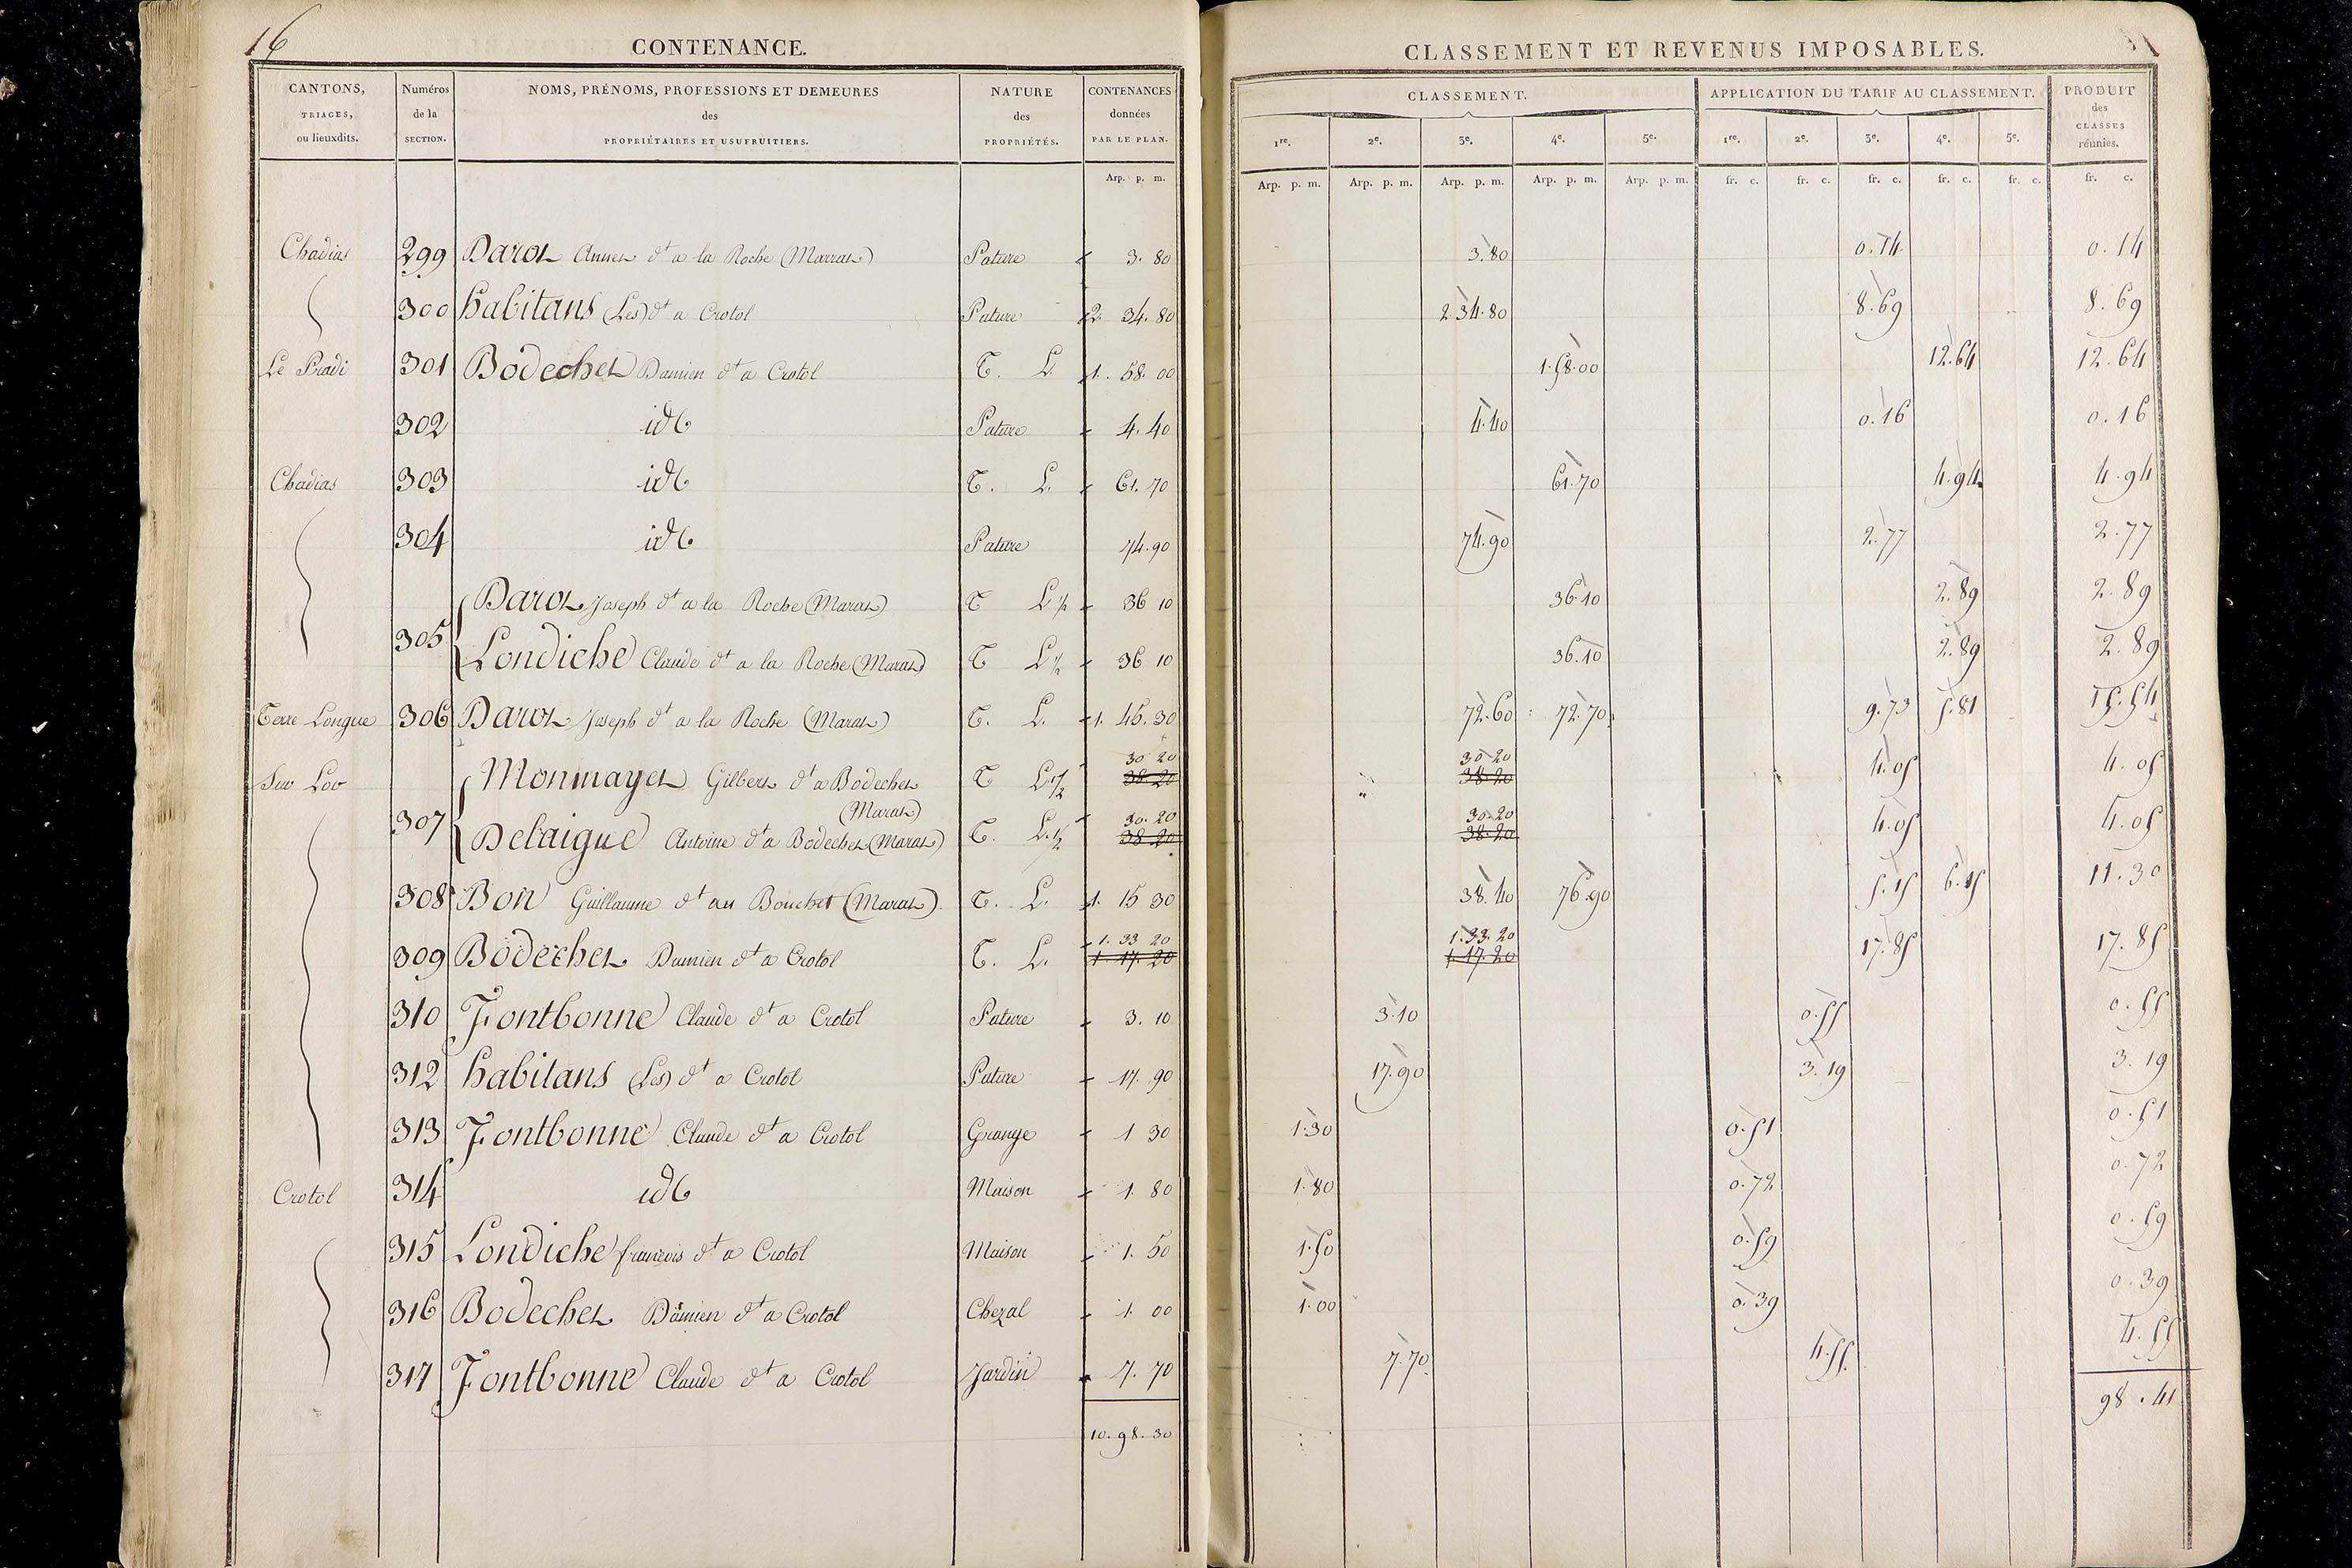 16
CONTENANCE.
CANTONS, TRIAGES, ou lieuxdits.
Numéros de la SECTION.
NOMS, PRÉNOMS, PROFESSIONS ET DEMEURES des PROPRIÉTAIRES ET USUFRUITIERS.
NATURE des PROPRIÉTÉS.
CONTENANCES données PAR LE PLAN.
Arp. p. m.
CLASSEMENT ET REVENUS IMPOSABLES.
CLASSEMENT.
APPLICATION DU TARIF AU CLASSEMENT.
PRODUIT des CLASSES réunies.
1re. 2e. 3e. 4e. 5e. 1re. 2e. 3e. 4e. 5e.
Arp. p. m. Arp. p. m. Arp. p. m. Arp. p. m. Arp. p. m. fr. c. fr. c. fr. c. fr. c. fr. c. fr. c.
Chadias 299 Darot Annet dt a la Roche (Marat) Pature 3. 80 3.80 0.14 0.14
300 habitans (Les) dt a Crotol Pature 2. 34. 80 2.34.80 8.69 8.69
Le Pradi 301 Bodechet Damien dt a Crotol T. L. 1. 58. 00 1.58.00 12.64 12.64
302 id Pature 4. 40 4.40 0.16 0.16
Chadias 303 id T. L. 61. 70 61.70 4.94 4.94
304 id Pature 74.90 74.90 2.77 2.77
305 Darot Joseph dt a la Roche (Marat) T L ½ 36 10 36.10 2.89 2.89
Londiche Claude dt a la Roche (Marat) T L ½ 36 10 36.10 2.89 2.89
Terre Longue 306 Darot Joseph dt a la Roche (Marat) T. L. 1. 45. 30 72.60 72.70 9.73 5.81 15.54
Suo Loo 307 Monmayet Gilbert dt a Bodechet (Marat) T L ½ 30 20 38 20 30 20 38 20 4.05 4.05
Delaigue Antoine dt a Bodechet (Marat) T. L. ½ 30. 20 38 20 30.20 38.20 4.05 4.05
308 Bon Guillaume dt au Bouchet (Marat) T. L. 1. 15 30 38.40 76.90 5.15 6.15 11.30
309 Bodechet Damien dt a Crotol T. L. 1. 33 20 1 17 20 1.33.20 1 17 20 17.85 17.85
310 Fontbonne Claude dt a Crotol Pature 3. 10 3.10 0.55 0.55
312 habitans (Les) dt a Crotol Pature 17. 90 17.90 3.19 3.19
313 Fontbonne Claude dt a Crotol Grange 1 30 1.30 0.51 0.51
Crotol 314 id Maison 1. 80 1.80 0.72 0.72
315 Londiche françois dt a Crotol Maison 1. 50 1.50 0.59 0.59
316 Bodechet Damien dt a Crotol Chezal 1. 00 1.00 0.39 0.39
317 Fontbonne Claude dt a Crotol Jardin 7. 70 7.70 4.55 4.55
10. 98. 30 98.41